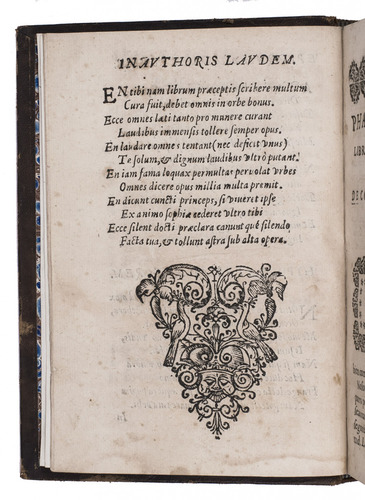 IN AVTHORIS LAVDEM.
EN tibi nam librum præceptis scribere multum
Cura fuit, debet omnis in orbe bonus.
Ecce omnes lati tanto pro munere curant
Laudibus immensis tollere semper opus.
En laudare omnes tentant (nec deficit vnus)
Te solum, & dignum laudibus vltrò putant.
En iam fama loquax permultas peruolat vrbes
Omnes dicere opus millia multa premit.
En dicunt cuncti princeps, si viueret ipse
Ex animo sophiæ cederet vltro tibi
Ecce silent docti præclara canunt qué silendo
Facta tua, & tollunt astra sub alta opera.
PHA
LIBRI
DE CO